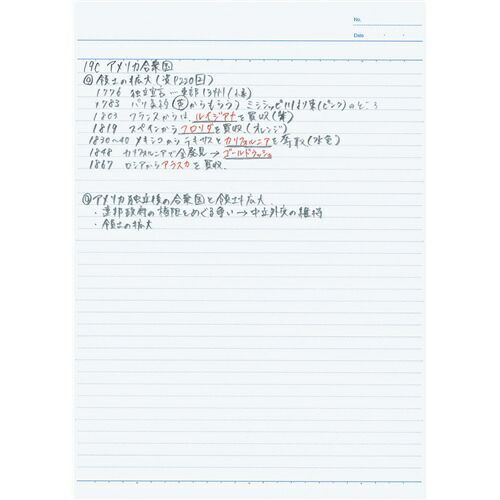 No.
Date ・ ・
19C アメリカ合衆国
◎領土の拡大(資P220図)
1776 独立宣言…東部13州
1783 パリ条約(英からもらう) ミシシッピ川より東(ピンク)のところ
1803 フランスから ルイジアナを買収
1819 スペインからフロリダを買収(オレンジ)
1830〜40 メキシコからテキサスとカリフォルニアを奪取(水色)
1848 カリフォルニアで金発見→ゴールドラッシュ
1867 ロシアからアラスカを買収
◎アメリカ独立後の合衆国と領土拡大
・連邦政府の権限をめぐる争い→中立外交の維持
・領土の拡大